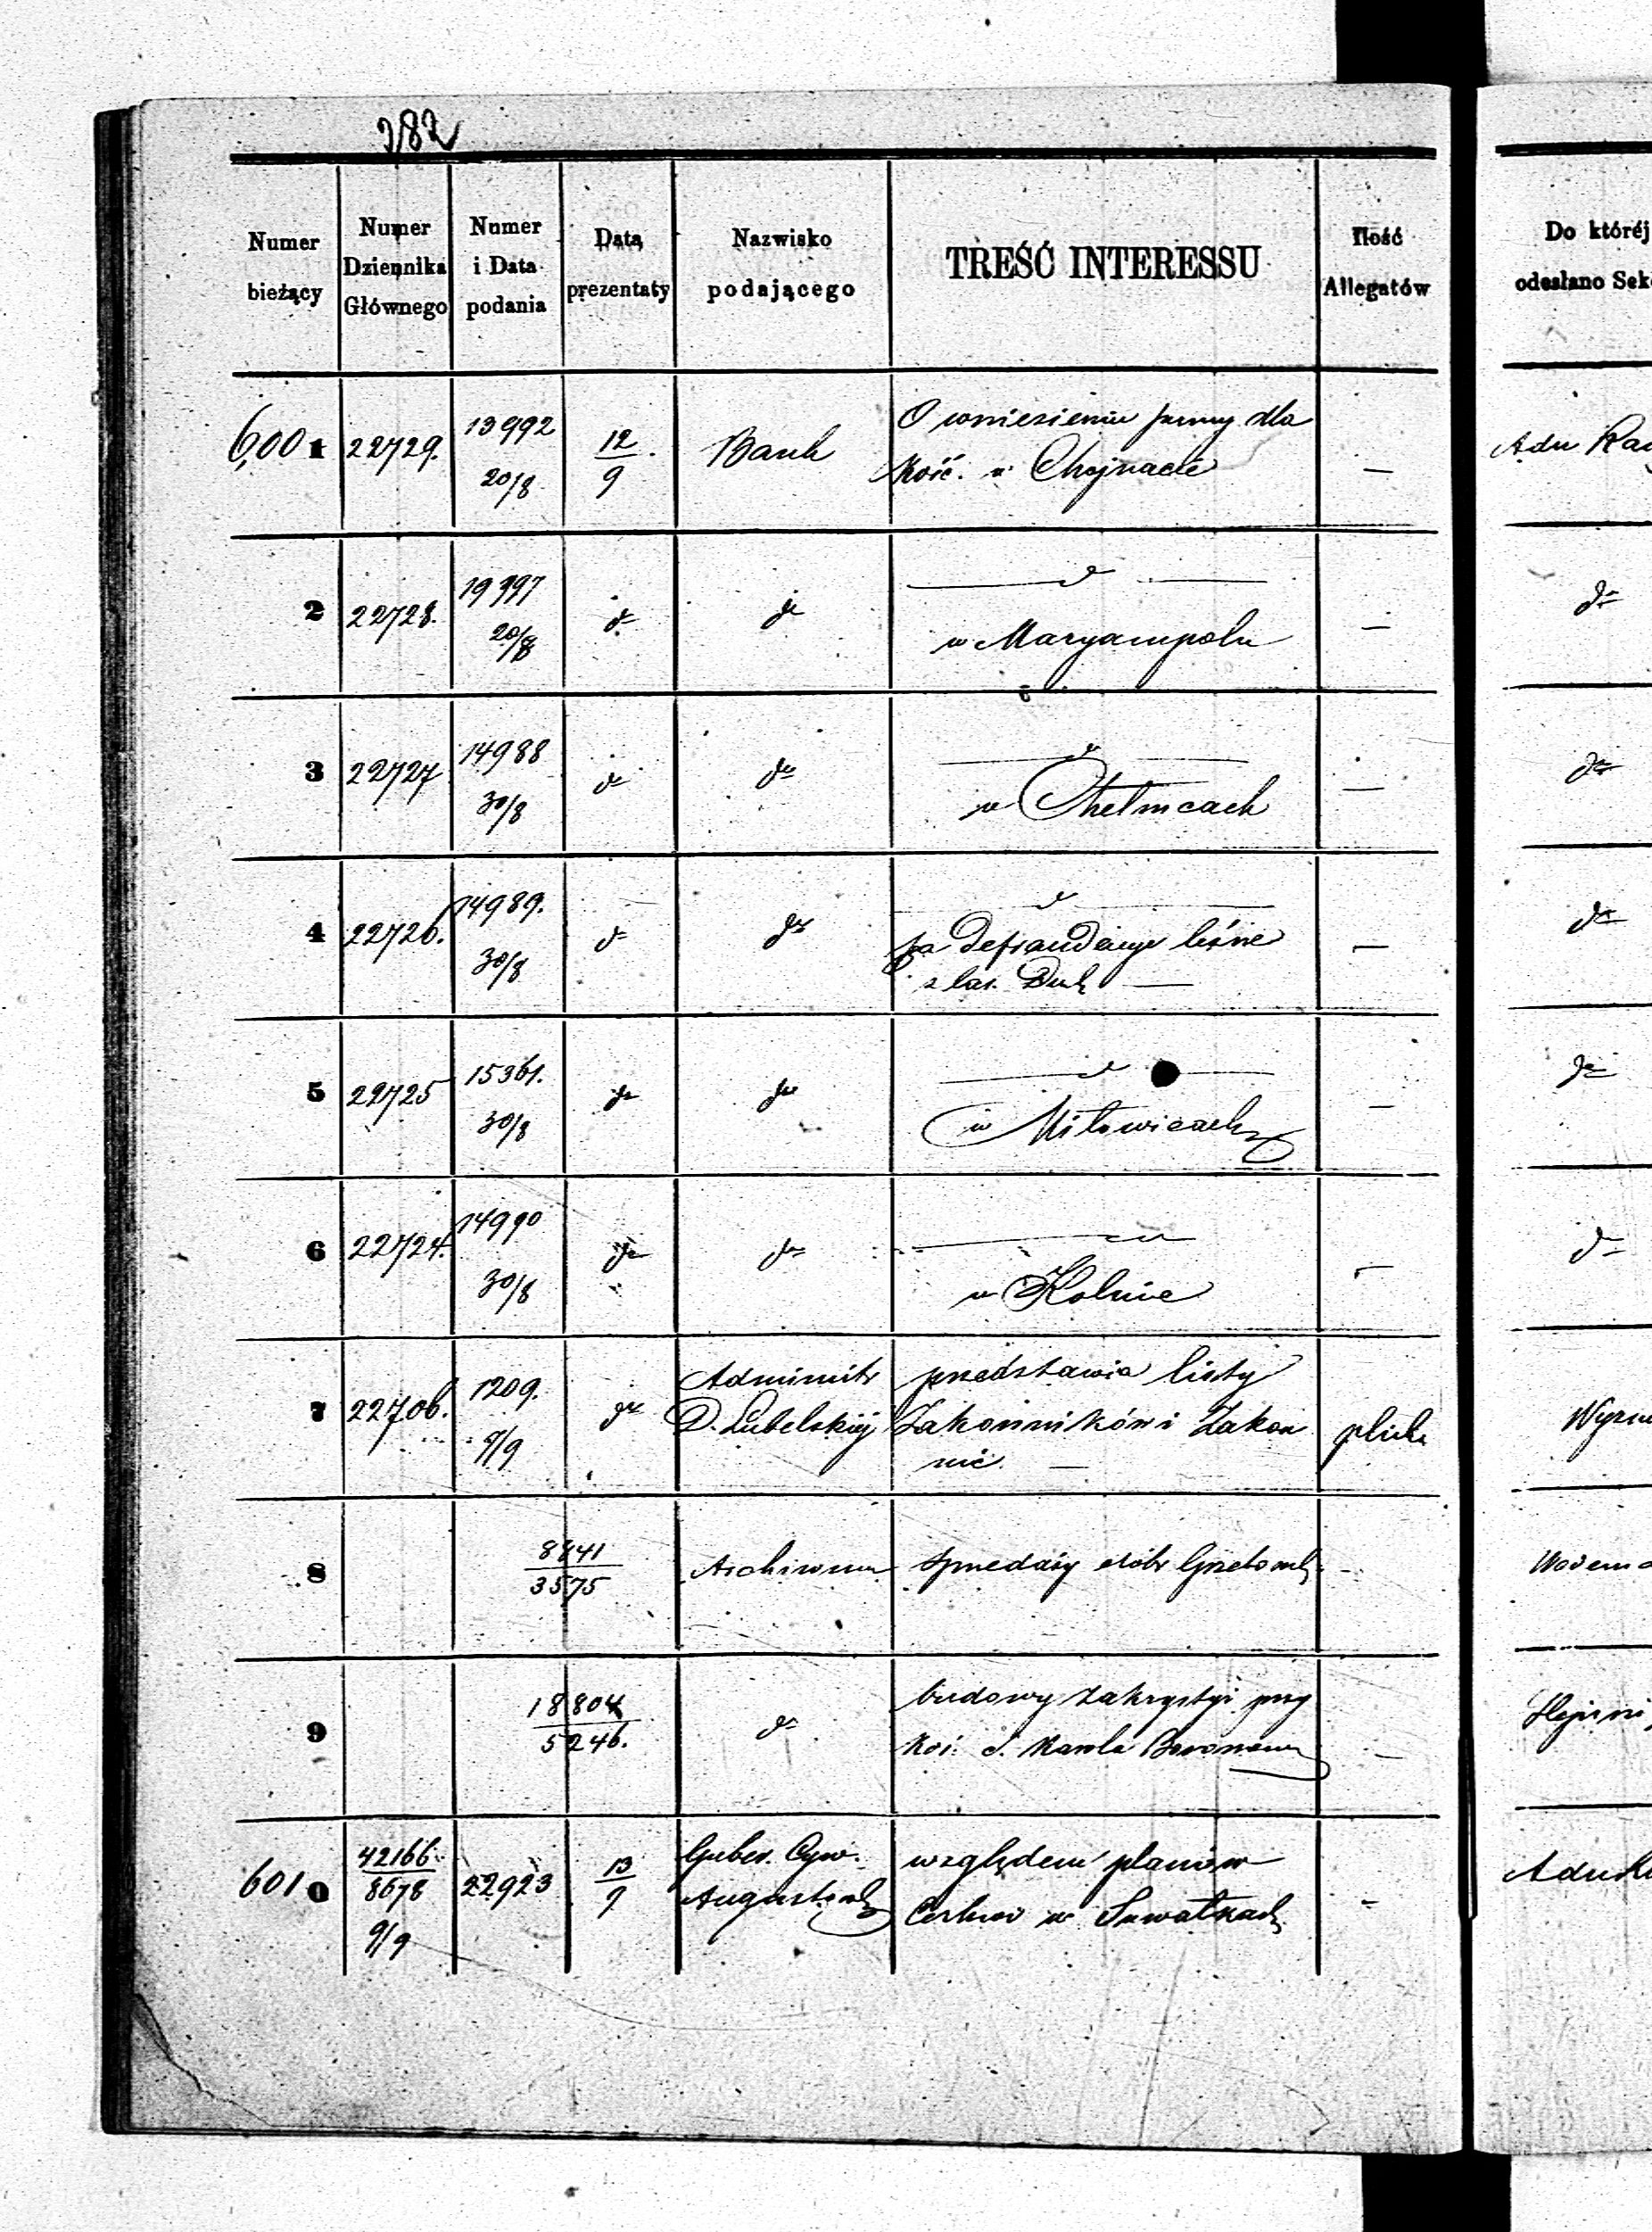 382
Numer bieżący
Numer Dziennika Głównego
Numer i Data podania
Data prezentaty
Nazwisko podającego
TREŚĆ INTERESSU
Ilość Allegatów
Do któréj
odesłano Sek
6001 22729. 13992 20/8 12/9 Bank O wniesieniu summy dla
Kość. w Chojnacie —
2 22728. 20/8 do do — do —
w Maryampolu — do
3 22727 14988 30/8 do do — do —
w Chełmcach — do
4 22726. 14989. 30/8 do do — do —
za defraudacye leśne
z las. — do
5 22725 15361. 30/8 do do — do —
w Miłowicach — do
6 22724. 14990 30/8 do do — do —
w Kolnie — do
7 22706. 1209. 9/9 do Administr
D. Lubelskiej
przedstawia listy
Zakonników i Zakon
nic —
8 8841
3575 Archiwum Sprzedaży dóbr —
9 18804
5246. do budowy zakrystyi przy
Koś. S. Karola Boromeusza —
6010 42166
8678
9/9 22923 13/9 Guber. Cyw.
Augustowski
względem planów
Cerkwi w Suwałkach -